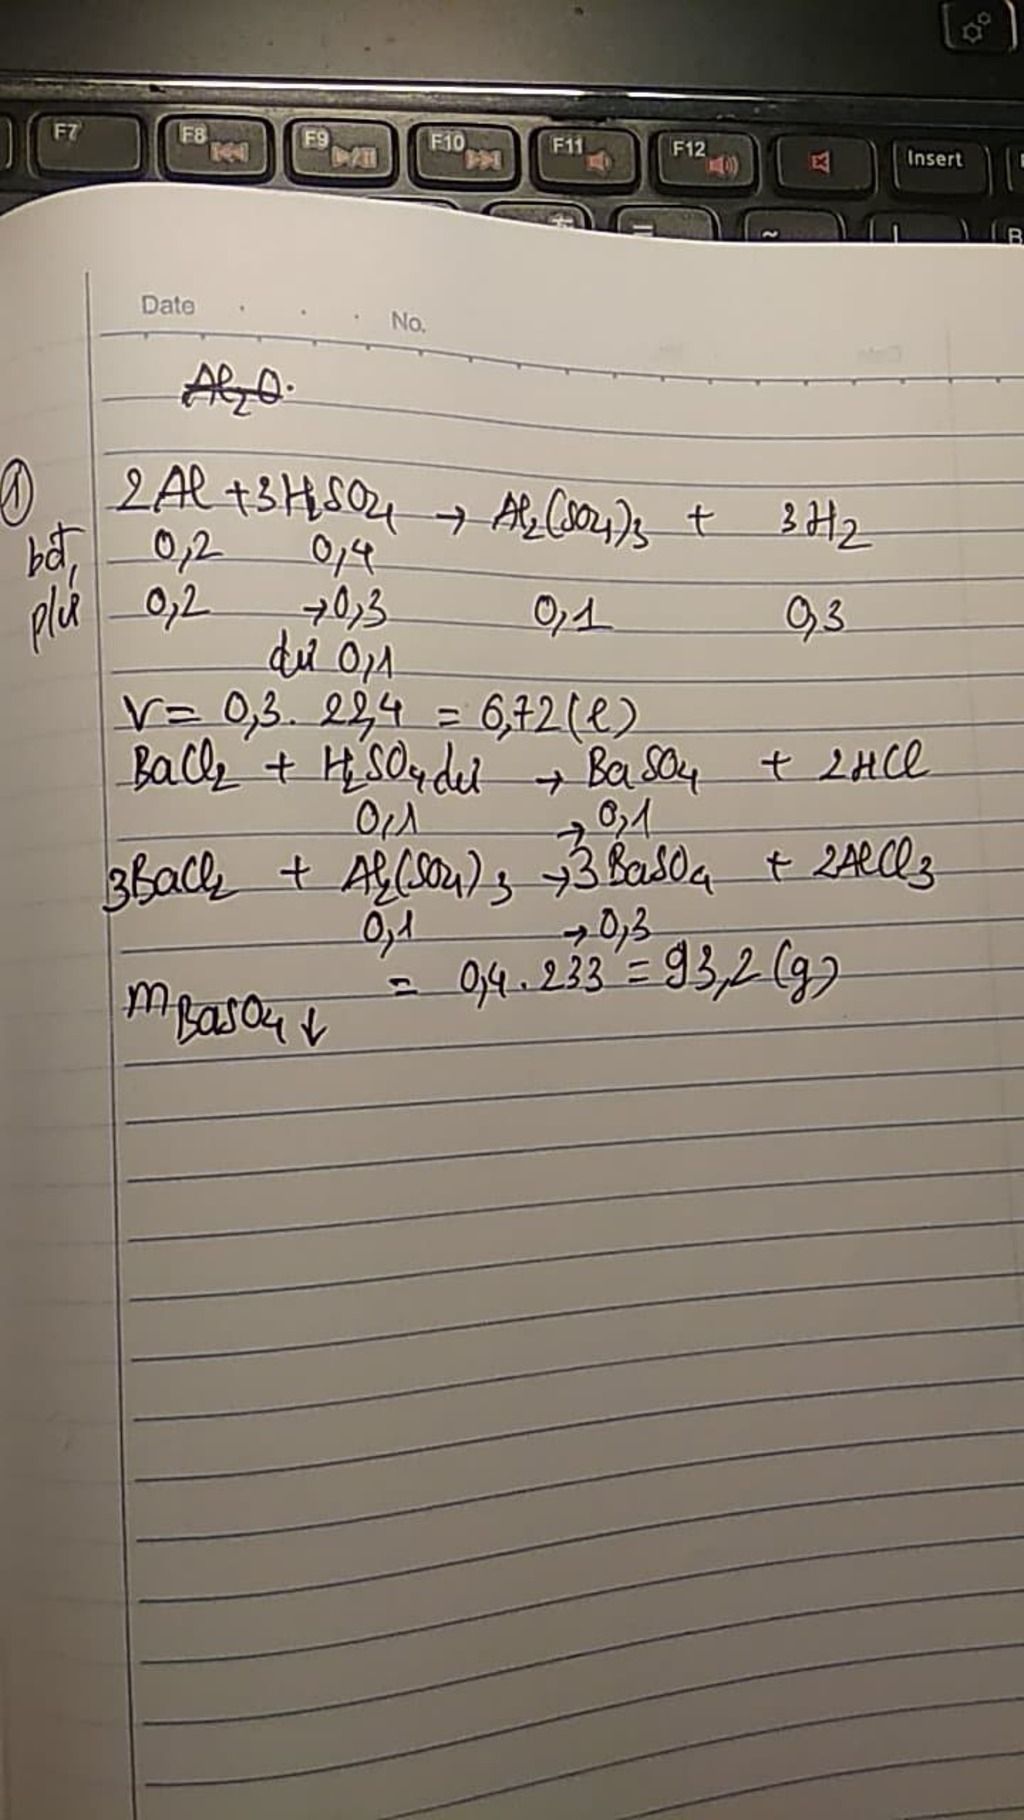 F7 F8 F9 F10 F11 F12 Insert
Date No.
Al₂O.
① 2Al + 3H₂SO₄ → Al₂(SO₄)₃ + 3H₂
bđ, 0,2 0,4
pư 0,2 → 0,3 0,1 0,3
dư 0,1
V = 0,3 . 22,4 = 6,72 (l)
BaCl₂ + H₂SO₄ dư → BaSO₄ + 2HCl
0,1 → 0,1
3BaCl₂ + Al₂(SO₄)₃ → 3BaSO₄ + 2AlCl₃
0,1 → 0,3
m BaSO₄ ↓ = 0,4 . 233 = 93,2 (g)